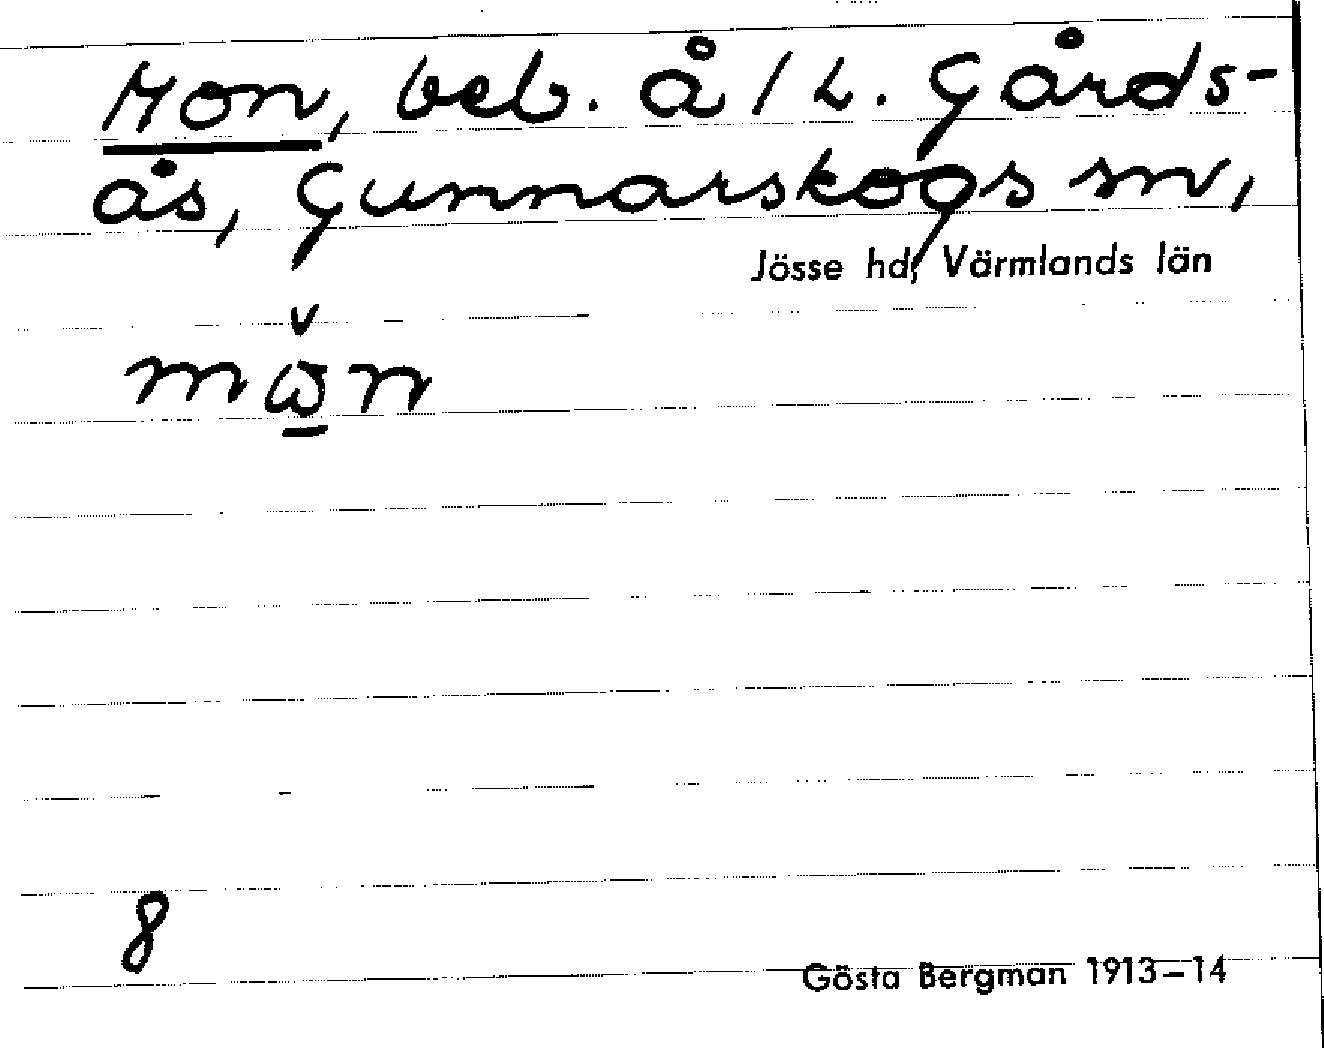 Mon, beb. å 1 L. Gårds-
ås, Gunnarskogs sn,
Jösse hd, Värmlands län
8
Gösta Bergman 1913–14